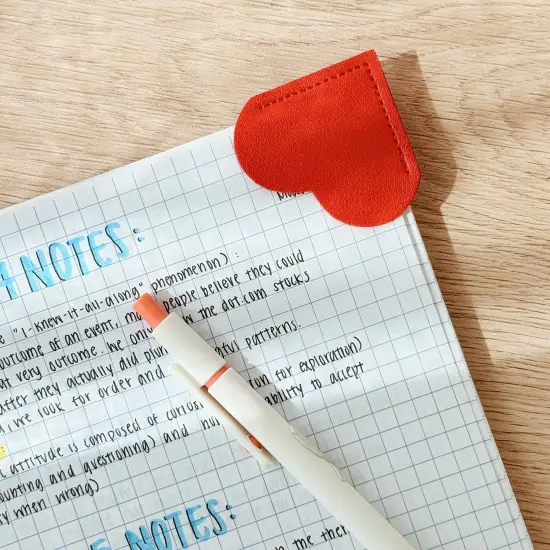 4 NOTES:
"I-knew-it-all-along" phenomenon):
outcome of an event, people believe they could
very outcome. We only the dot.com stocks
after they actually did patterns.
, we look for order and
attitude is composed of for exploration)
and questioning) and ability to accept
when wrong)
NOTES:
the